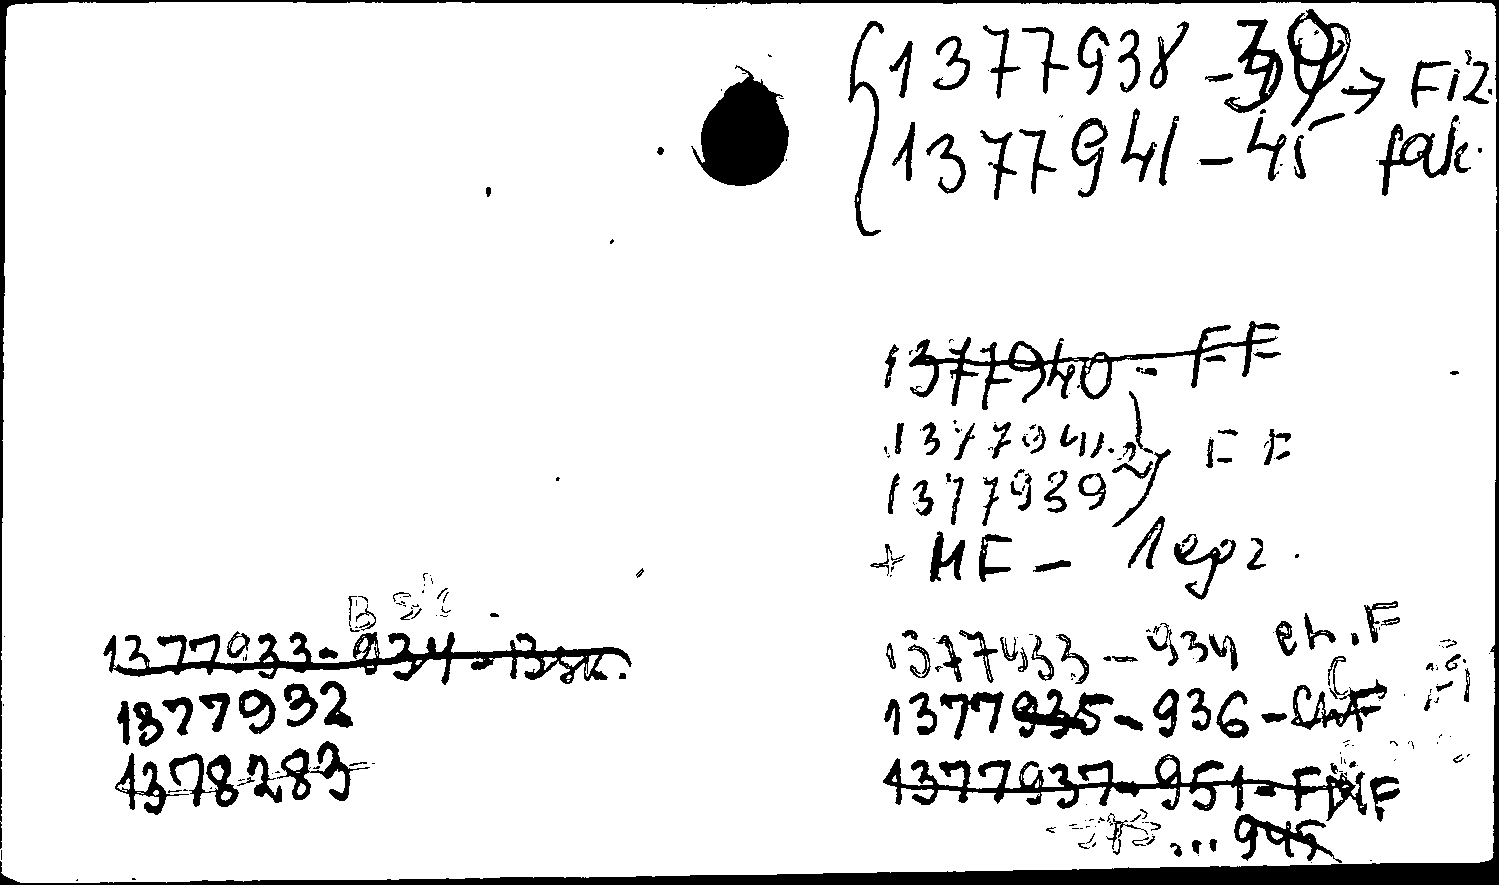 1377938-39 → Fiz.
1377941-45 fak.
1377940 - FF
1377941.2
1377939
FF
+ MF - 1 egz.
B sk
1377933-934-Bsk.
1377932
1378283
1377933-934 ch.F
1377935-936-ChF
1377937-951-FMF
... 945